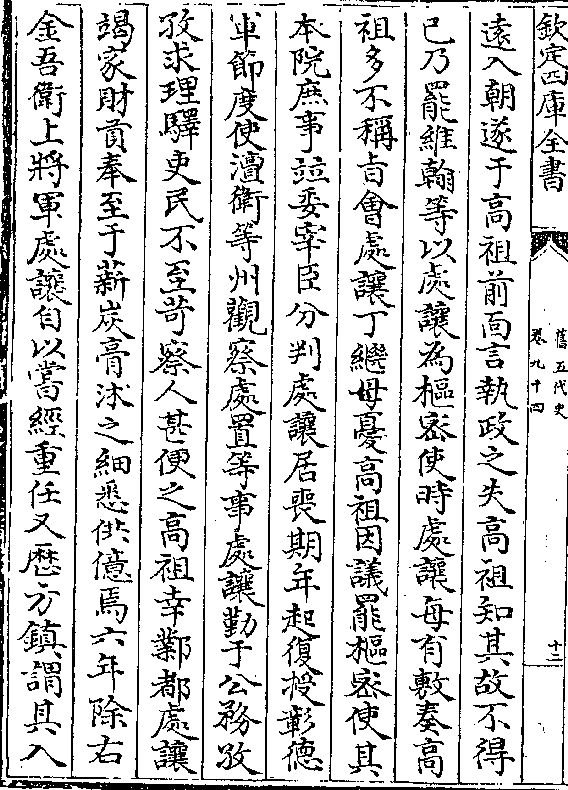 欽定四庫全書
舊五代史
卷九十四
十二
遠入朝遂于高祖前面言執政之失高祖知其故不得
已乃罷維翰等以處讓為樞密使時處讓每有敷奏高
祖多不稱旨會處讓丁繼母憂高祖因議罷樞密使其
本院庶事竝委宰臣分判處讓居喪期年起復授彰德
軍節度使澶衛等州觀察處置等事處讓勤于公務孜
孜求理驛吏民不至苛察人甚便之高祖幸鄴都處讓
竭家財貢奉至于薪炭膏沐之細悉供億焉六年除右
金吾衛上將軍處讓自以嘗經重任又歷方鎮謂其入